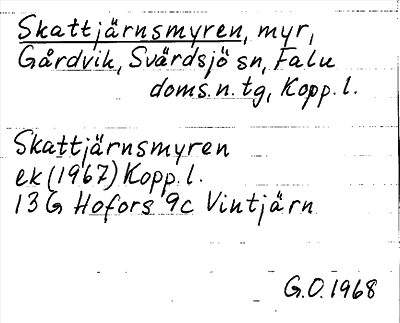 Skattjärnsmyren, myr,
Gårdvik, Svärdsjö sn, Falu
doms.n.tg, Kopp.l.
Skattjärnsmyren
ek (1967) Kopp.l.
13 G Hofors 9c Vintjärn
G.O. 1968